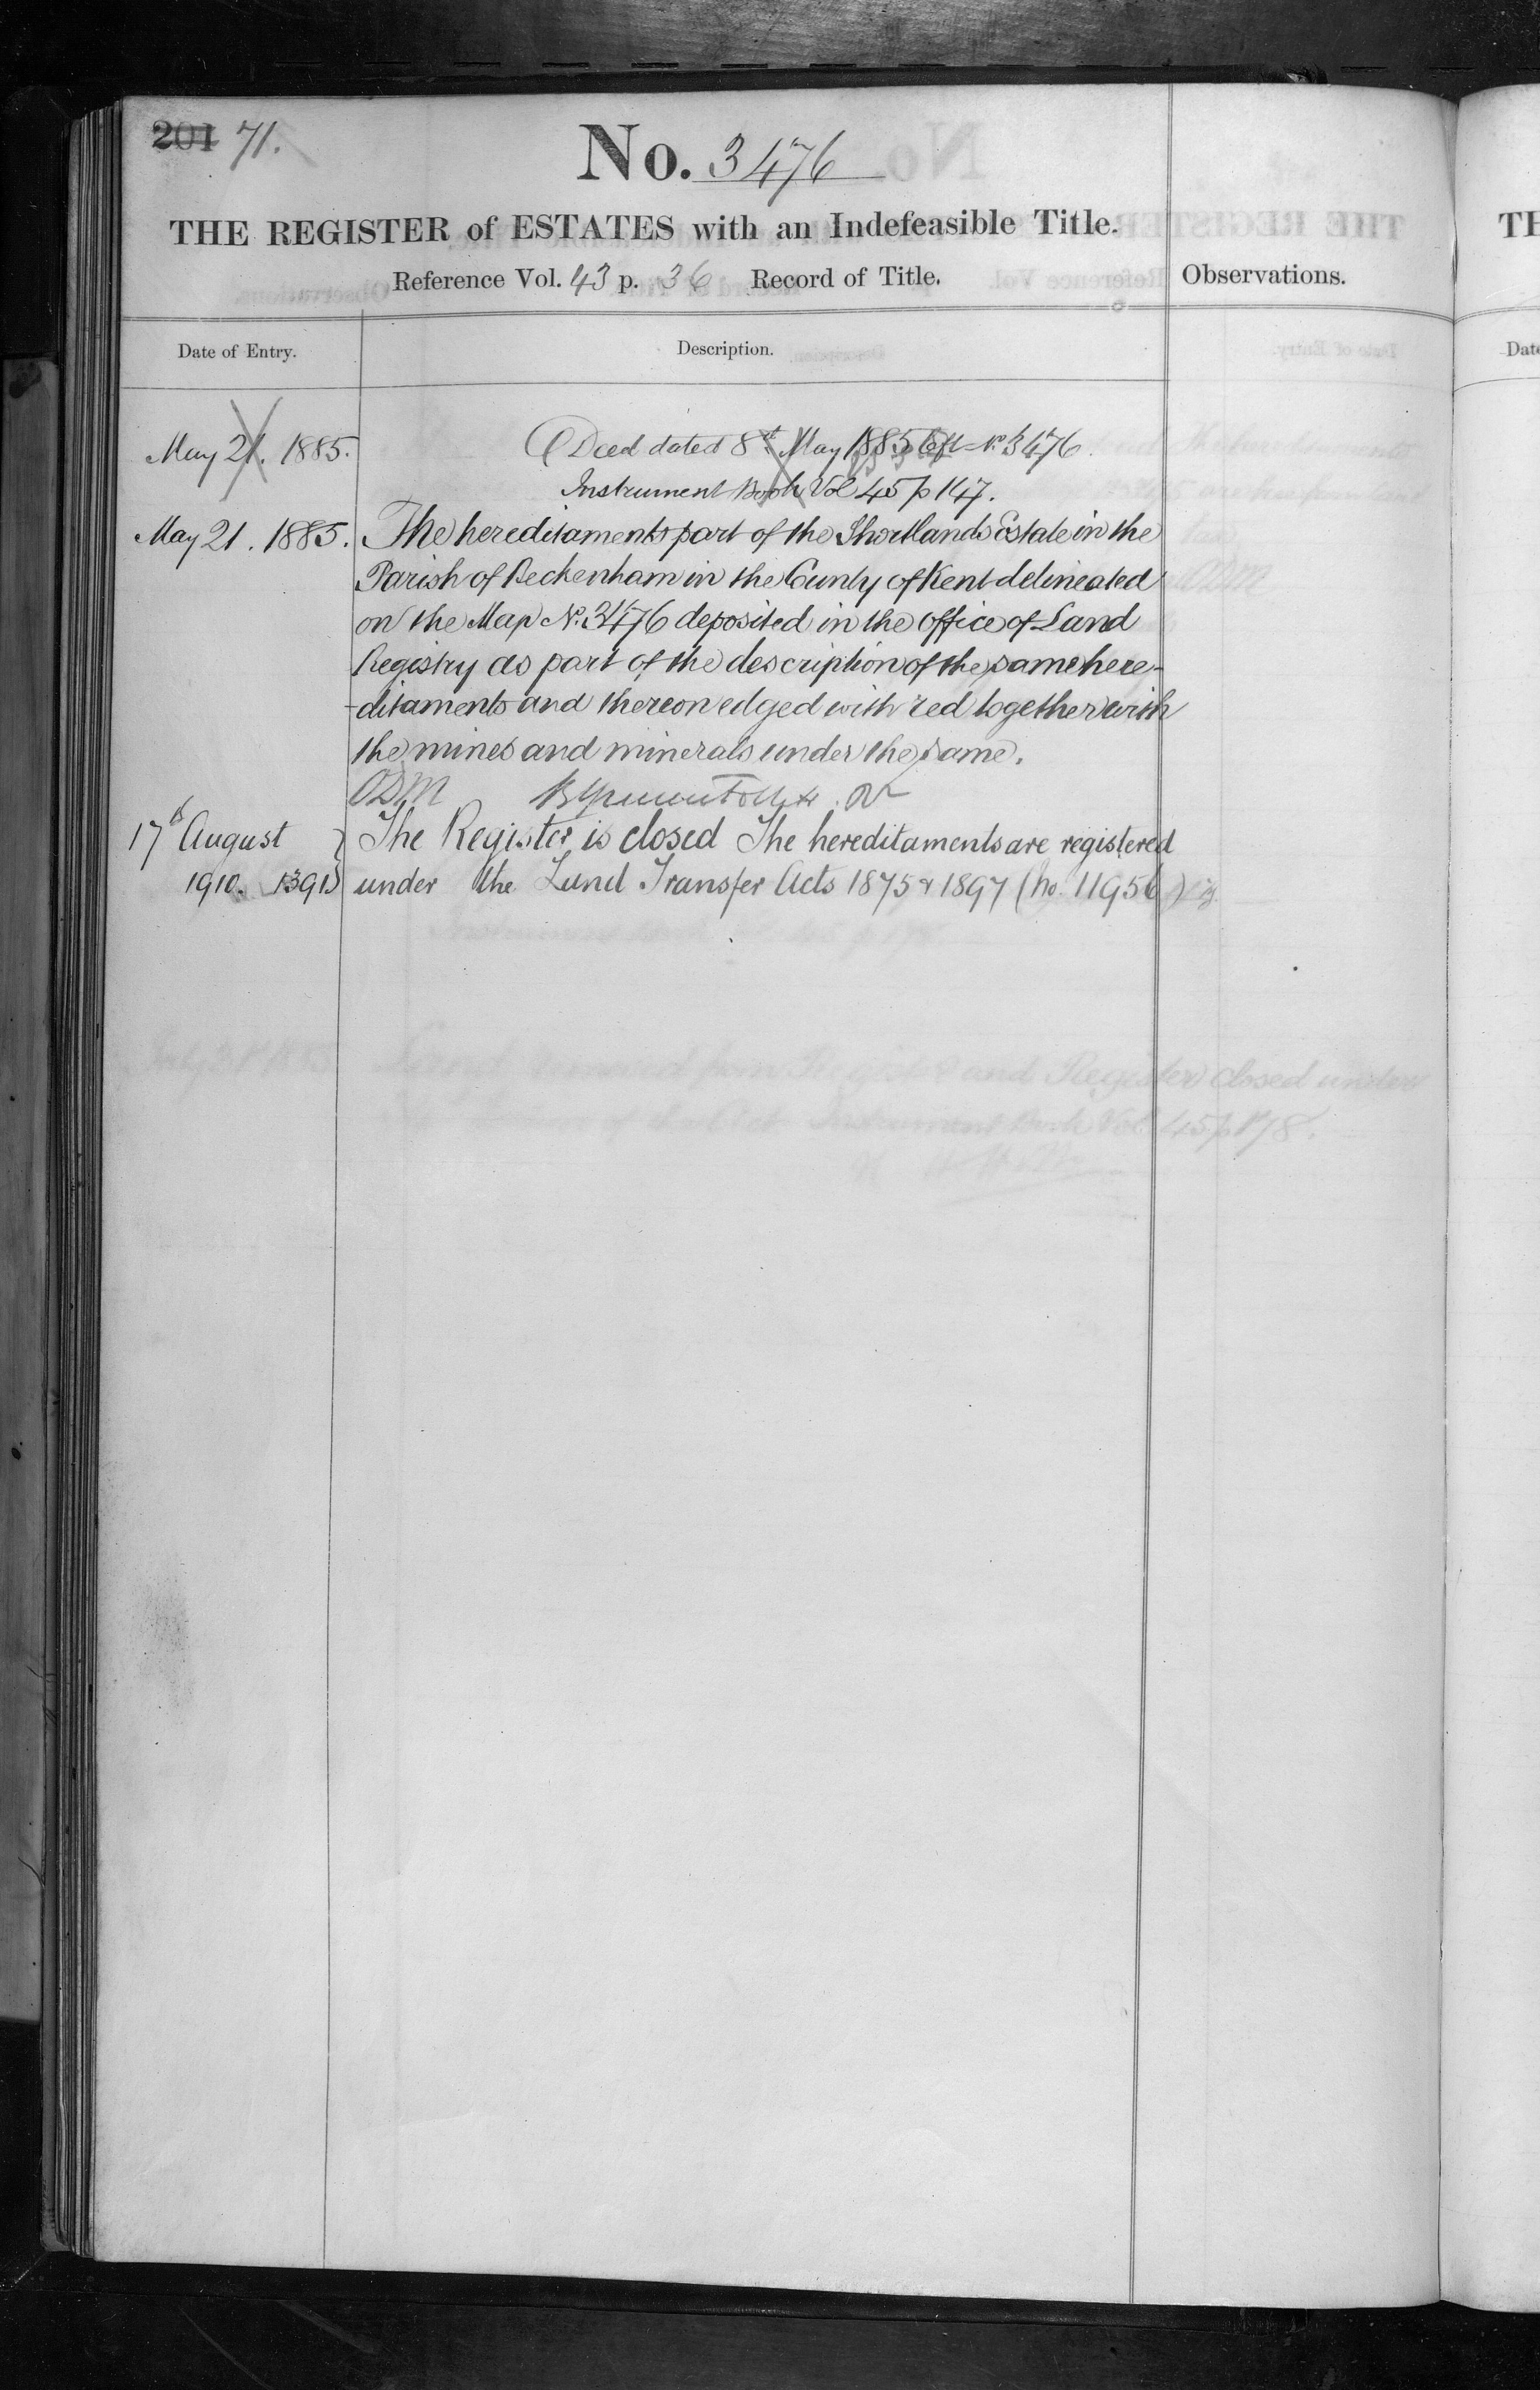 201 71.
No. 3476
THE REGISTER of ESTATES with an Indefeasible Title.
Reference Vol. 43 p. 36 Record of Title.
Observations.
Date of Entry.
Description.
May 21. 1885.
Deed dated 8th May 1885 left No. 3476
Instrument Book Vol 45 p 147.
May 21. 1885.
The hereditaments part of the Shortlands Estate in the
Parish of Beckenham in the County of Kent delineated
on the Map No. 3476 deposited in the office of Land
Registry as part of the description of the same here-
-ditaments and thereon edged with red together with
the mines and minerals under the same.
ODM
17th August
1910. 1391
The Register is closed The hereditaments are registered
under the Land Transfer Acts 1875 & 1897 (No. 11956)